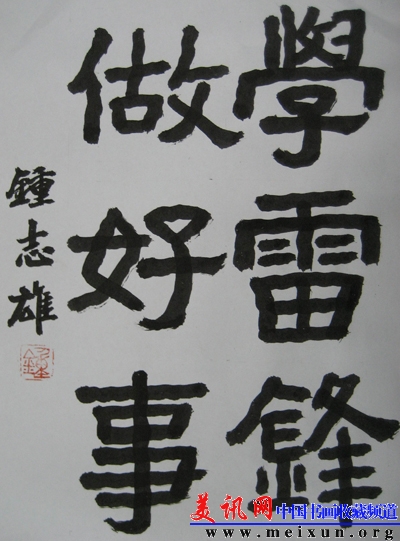 學雷鋒
做好事
鍾志雄
美讯网 中国书画收藏频道
www.meixun.org